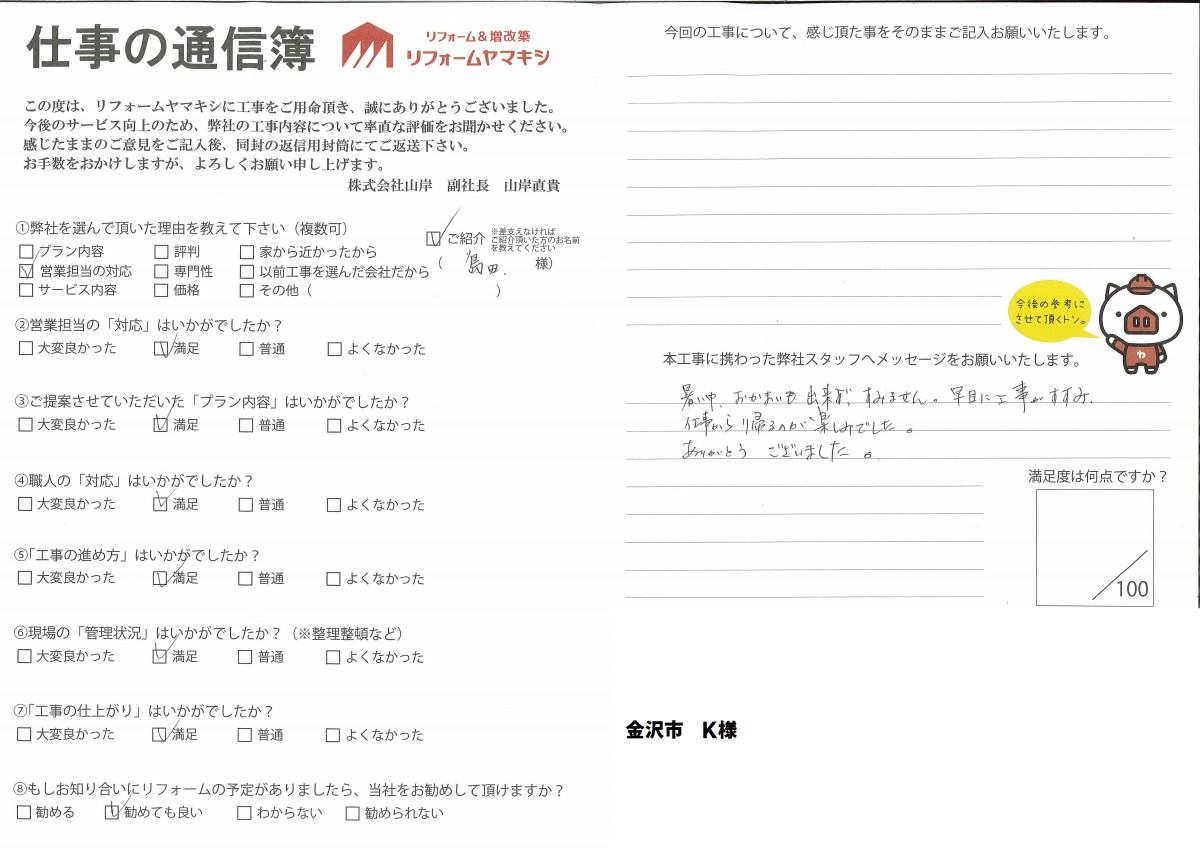 仕事の通信簿
リフォーム&増改築
リフォームヤマキシ
この度は、リフォームヤマキシに工事をご用命頂き、誠にありがとうございました。
今後のサービス向上のため、弊社の工事内容について率直な評価をお聞かせください。
感じたままのご意見をご記入後、同封の返信用封筒にてご返送下さい。
お手数をおかけしますが、よろしくお願い申し上げます。
株式会社山岸 副社長 山岸直貴
①弊社を選んで頂いた理由を教えて下さい(複数可)
プラン内容 評判 家から近かったから
営業担当の対応 専門性 以前工事を選んだ会社だから
サービス内容 価格 その他( )
ご紹介
※差支えなければ
ご紹介頂いた方のお名前
を教えてください
(島田. 様)
②営業担当の「対応」はいかがでしたか?
大変良かった 満足 普通 よくなかった
③ご提案させていただいた「プラン内容」はいかがでしたか?
大変良かった 満足 普通 よくなかった
④職人の「対応」はいかがでしたか?
大変良かった 満足 普通 よくなかった
⑤「工事の進め方」はいかがでしたか?
大変良かった 満足 普通 よくなかった
⑥現場の「管理状況」はいかがでしたか?(※整理整頓など)
大変良かった 満足 普通 よくなかった
⑦「工事の仕上がり」はいかがでしたか?
大変良かった 満足 普通 よくなかった
⑧もしお知り合いにリフォームの予定がありましたら、当社をお勧めして頂けますか?
勧める 勧めても良い わからない 勧められない
今回の工事について、感じ頂た事をそのままご記入お願いいたします。
今後の参考に
させて頂くトン。
ヤ
本工事に携わった弊社スタッフへメッセージをお願いいたします。
暑い中、おかまいも出来ず、すみません。早目に工事がすすみ、
仕事から帰るのが楽しみでした。
ありがとうございました。
満足度は何点ですか?
/100
金沢市 K様